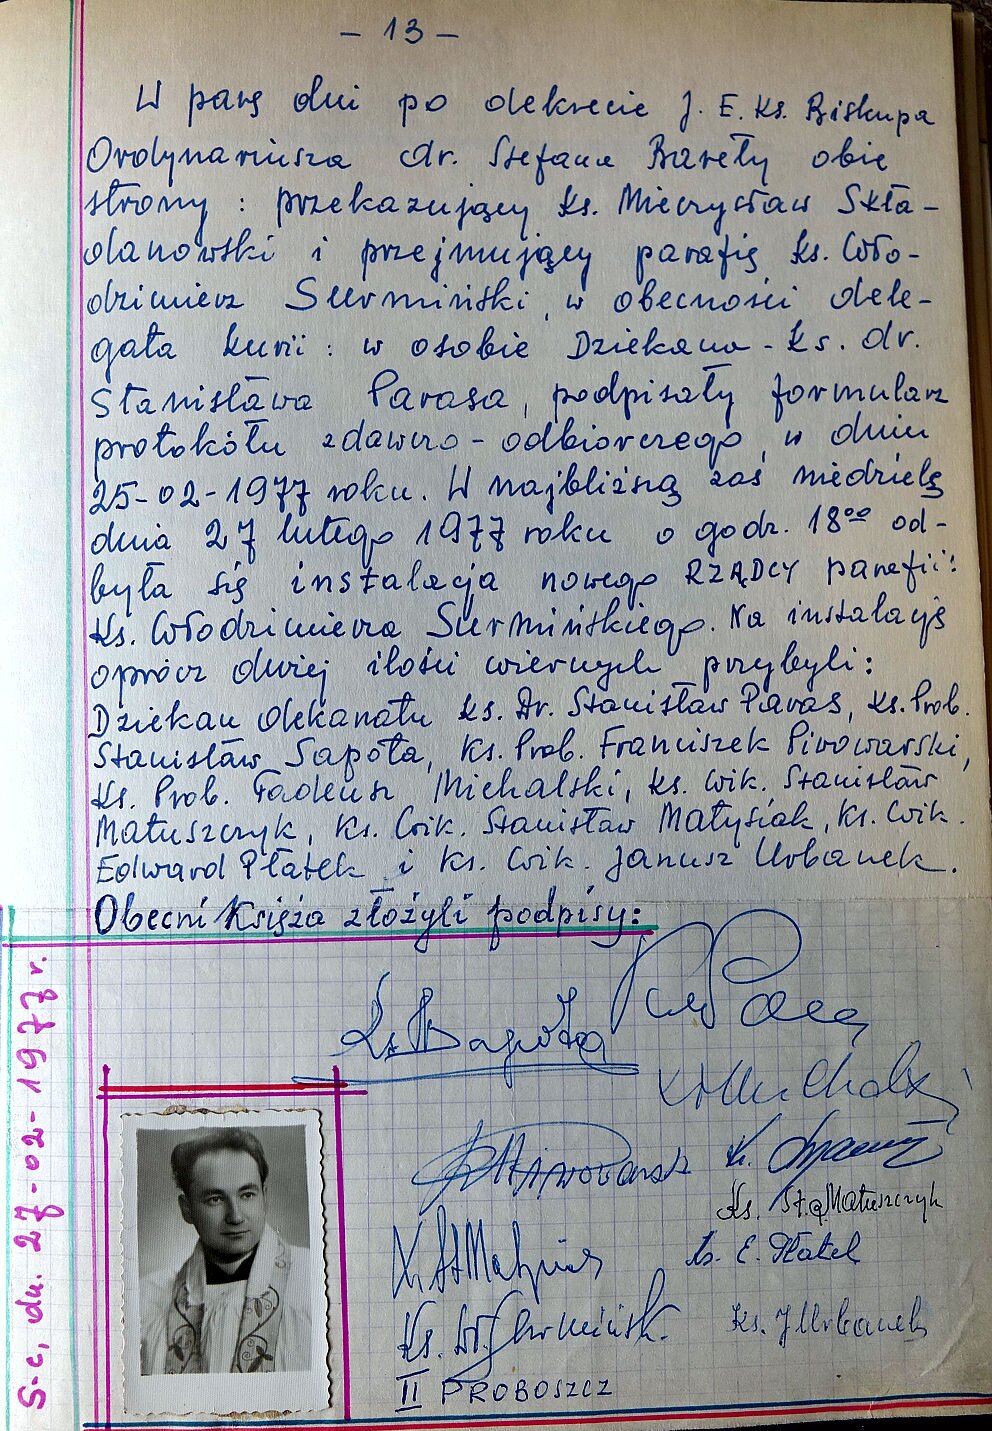 - 13 -
W parę dni po dekrecie J. E. Ks. Biskupa
Ordynariusza dr. Stefana Bareły obie
strony : przekazujący Ks. Mieczysław Skła-
danowski i przejmujący parafię Ks. Wło-
dzimierz Surmiński, w obecności dele-
gata kurii : w osobie Dziekana - Ks. dr.
Stanisława Parasa, podpisały formularz
protokółu zdawczo - odbiorczego, w dniu
25-02-1977 roku. W najbliższą zaś niedzielę
dnia 27 lutego 1977 roku o godz. 18⁰⁰ od-
była się instalacja nowego RZĄDCY parafii:
Ks. Włodzimierza Surmińskiego. Na instalację
oprócz dużej ilości wiernych przybyli:
Dziekan dekanatu Ks. Dr. Stanisław Paras, Ks. Prob.
Stanisław Sapota, Ks. Prob. Franciszek Piwowarski,
Ks. Prob. Tadeusz Michalski, Ks. Wik. Stanisław
Matuszczyk, Ks. Wik. Stanisław Małysiak, Ks. Wik.
Edward Płatek i Ks. Wik. Janusz Urbanek.
Obecni Księża złożyli podpisy:
Ks. Sapota
Ks. St. Matuszczyk
ks. E. Płatek
Ks. J Urbanek
II PROBOSZCZ
S-c, dn. 27-02-1977 r.